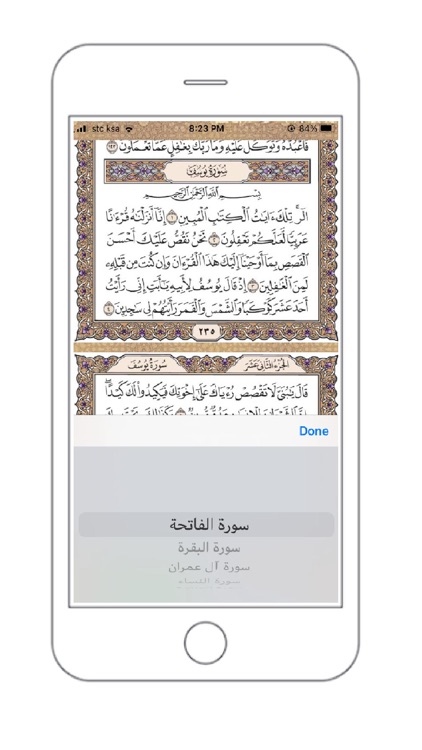 stc ksa 8:23 PM 84%
فَاعْبُدْهُ وَتَوَكَّلْ عَلَيْهِ وَمَا رَبُّكَ بِغَافِلٍ عَمَّا تَعْمَلُونَ ١٢٣
سُورَةُ يُوسُفَ
بِسْمِ اللَّهِ الرَّحْمَٰنِ الرَّحِيمِ
الٓر تِلْكَ ءَايَٰتُ ٱلْكِتَٰبِ ٱلْمُبِينِ ١ إِنَّآ أَنزَلْنَٰهُ قُرْءَٰنًا
عَرَبِيًّا لَّعَلَّكُمْ تَعْقِلُونَ ٢ نَحْنُ نَقُصُّ عَلَيْكَ أَحْسَنَ
ٱلْقَصَصِ بِمَآ أَوْحَيْنَآ إِلَيْكَ هَٰذَا ٱلْقُرْءَانَ وَإِن كُنتَ مِن قَبْلِهِۦ
لَمِنَ ٱلْغَٰفِلِينَ ٣ إِذْ قَالَ يُوسُفُ لِأَبِيهِ يَٰٓأَبَتِ إِنِّى رَأَيْتُ
أَحَدَ عَشَرَ كَوْكَبًا وَٱلشَّمْسَ وَٱلْقَمَرَ رَأَيْتُهُمْ لِى سَٰجِدِينَ ٤
٢٣٥
الجُزْءُ الثَّانِي عَشَرَ سُورَةُ يُوسُفَ
قَالَ يَٰبُنَىَّ لَا تَقْصُصْ رُءْيَاكَ عَلَىٰٓ إِخْوَتِكَ فَيَكِيدُوا۟ لَكَ كَيْدًا
Done
سورة الفاتحة
سورة البقرة
سورة آل عمران
سورة النساء